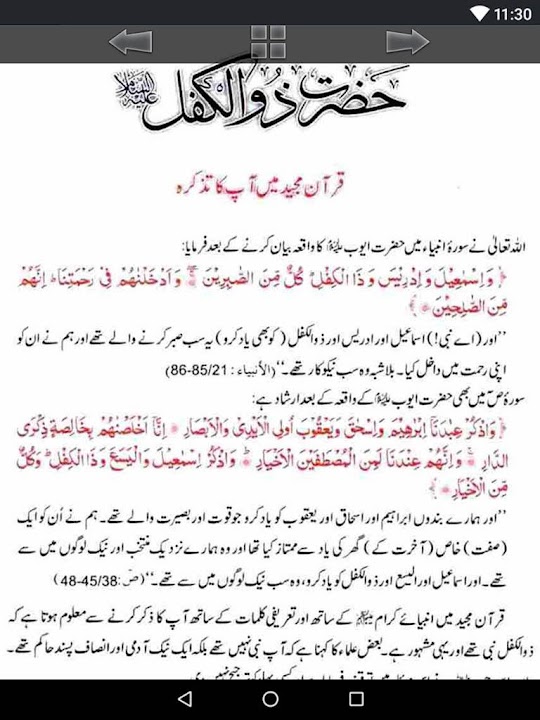 11:30
حضرت ذوالکفل علیہ السلام
قرآن مجید میں آپ کا تذکرہ
اللہ تعالیٰ نے سورۂ انبیاء میں حضرت ایوب علیہ السلام کا واقعہ بیان کرنے کے بعد فرمایا:
﴿ وَاِسْمٰعِيْلَ وَاِدْرِيْسَ وَذَا الْكِفْلِ ۭ كُلٌّ مِّنَ الصّٰبِرِيْنَ ۝ وَاَدْخَلْنٰهُمْ فِيْ رَحْمَتِنَا ۭ اِنَّهُمْ
مِّنَ الصّٰلِحِيْنَ ۝ ﴾
’’اور (اے نبی!) اسماعیل اور ادریس اور ذوالکفل (کو بھی یاد کرو) یہ سب صبر کرنے والے تھے اور ہم نے ان کو
اپنی رحمت میں داخل کیا۔ بلاشبہ وہ سب نیکوکار تھے۔‘‘ (الأنبياء : 86-85/21)
سورۂ صٓ میں بھی حضرت ایوب علیہ السلام کے واقعہ کے بعد ارشاد ہے:
﴿ وَاذْكُرْ عِبٰدَنَآ اِبْرٰهِيْمَ وَاِسْحٰقَ وَيَعْقُوْبَ اُولِي الْاَيْدِيْ وَالْاَبْصَارِ ۝ اِنَّآ اَخْلَصْنٰهُمْ بِخَالِصَةٍ ذِكْرَى
الدَّارِ ۝ وَاِنَّهُمْ عِنْدَنَا لَمِنَ الْمُصْطَفَيْنَ الْاَخْيَارِ ۝ وَاذْكُرْ اِسْمٰعِيْلَ وَالْيَسَعَ وَذَا الْكِفْلِ ۭ وَكُلٌّ
مِّنَ الْاَخْيَارِ ۝ ﴾
’’اور ہمارے بندوں ابراہیم اور اسحاق اور یعقوب کو یاد کرو جو قوت اور بصیرت والے تھے۔ ہم نے اُن کو ایک
(صفت) خاص (آخرت کے) گھر کی یاد سے ممتاز کیا تھا اور وہ ہمارے نزدیک منتخب اور نیک لوگوں میں سے
تھے۔ اور اسماعیل اور الیسع اور ذوالکفل کو یاد کرو، وہ سب نیک لوگوں میں سے تھے۔‘‘ (صٓ : 48-45/38)
قرآن مجید میں انبیائے کرام علیہم السلام کے ساتھ اور تعریفی کلمات کے ساتھ آپ کا ذکر کرنے سے معلوم ہوتا ہے کہ
ذوالکفل نبی تھے اور یہی مشہور ہے۔ بعض علماء کا کہنا ہے کہ آپ نبی نہیں تھے بلکہ ایک نیک آدمی اور انصاف پسند حاکم تھے۔